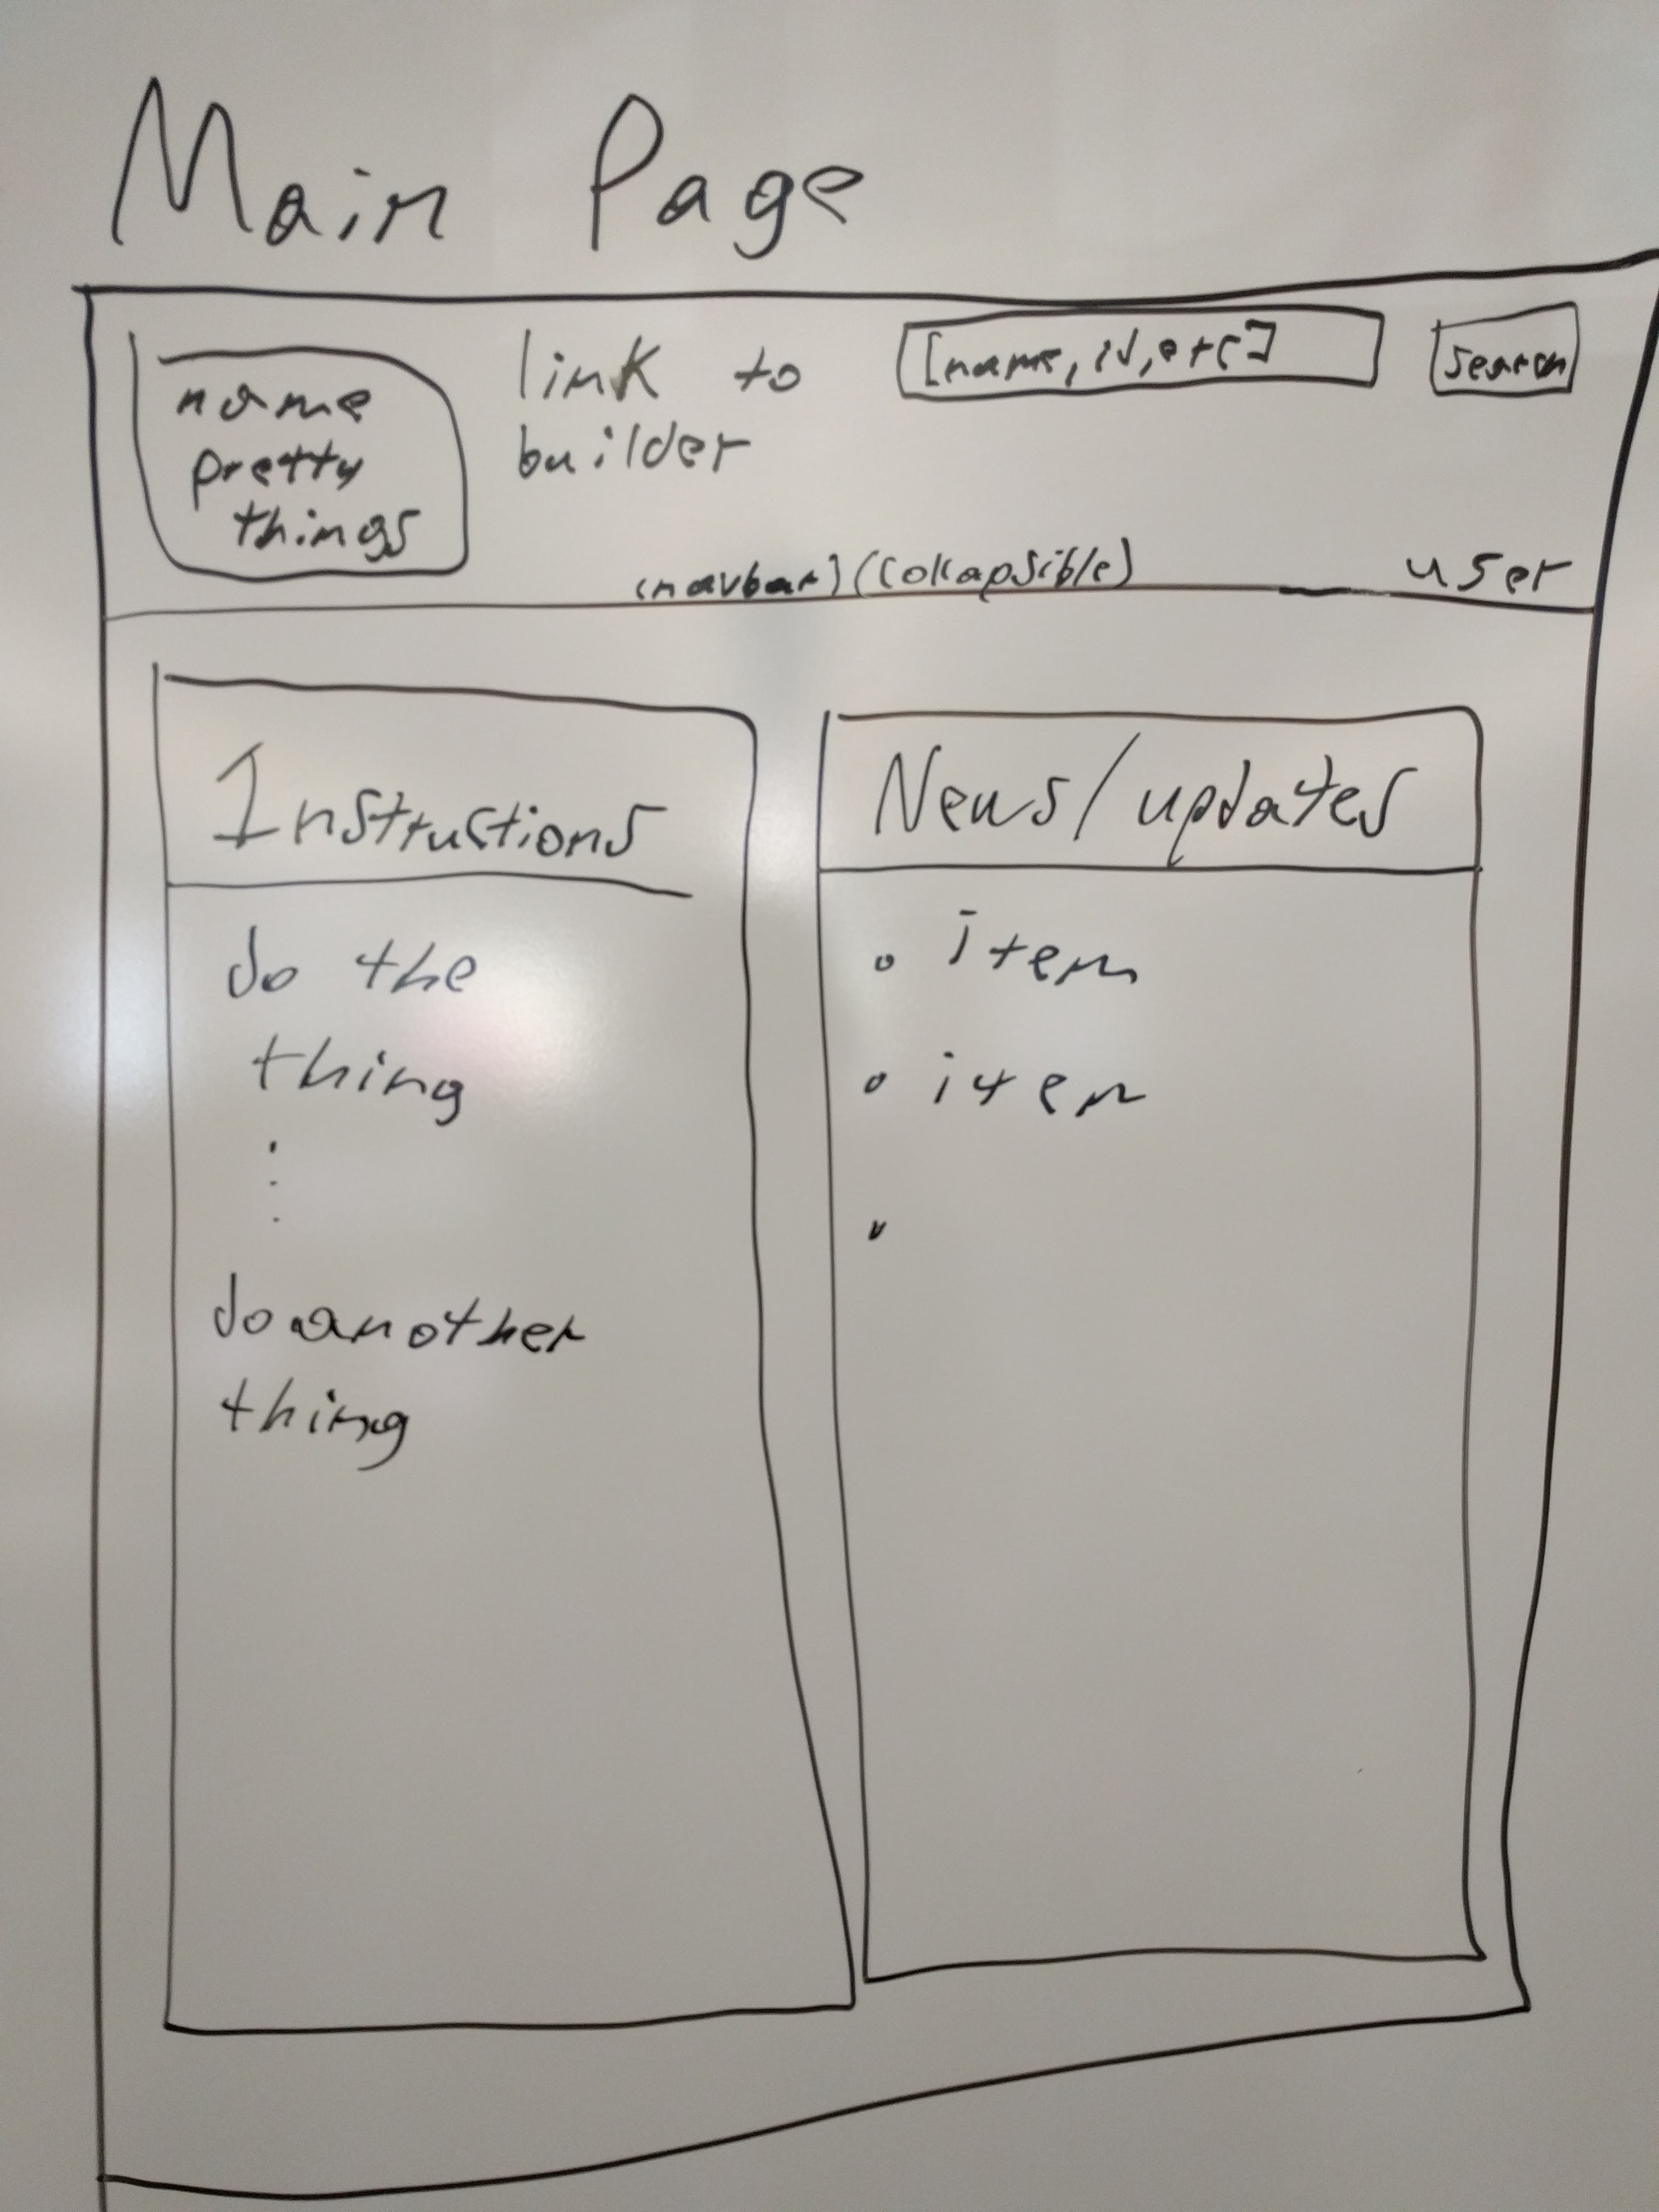 Main Page
name
pretty
things
link to
builder
[name, id, etc]
search
(navbar) (collapsible)
user
Instructions
do the
thing
do another
thing
News/updates
item
item